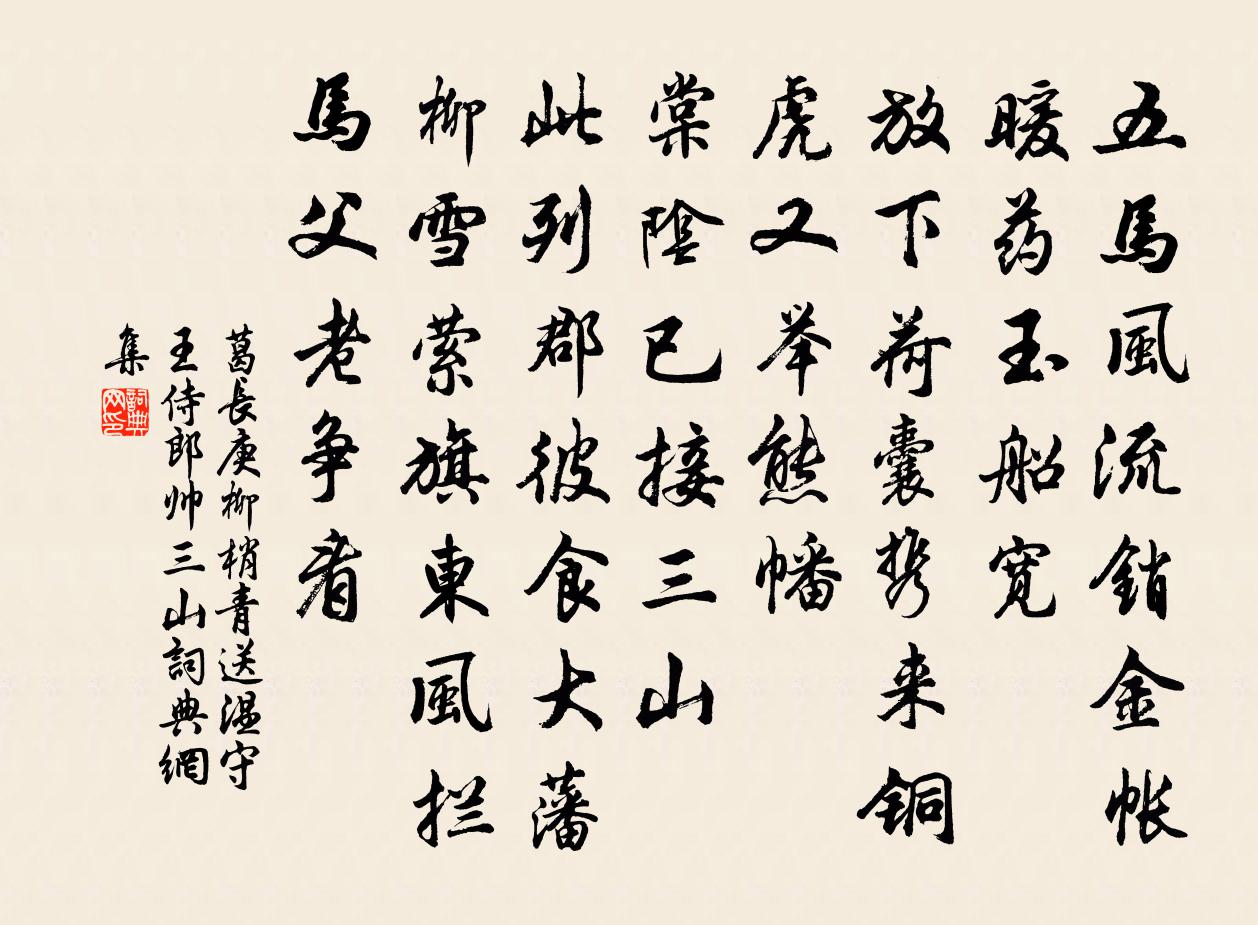 五馬風流銷金帐
暖药玉船宽
放下荷囊携来铜
虎又举熊幡
棠陰已接三山
此列郡彼食大藩
柳雪萦旗東風拦
馬父老争看
葛長庚柳梢青送温守
王侍郎帅三山詞典網
集
詞典网印